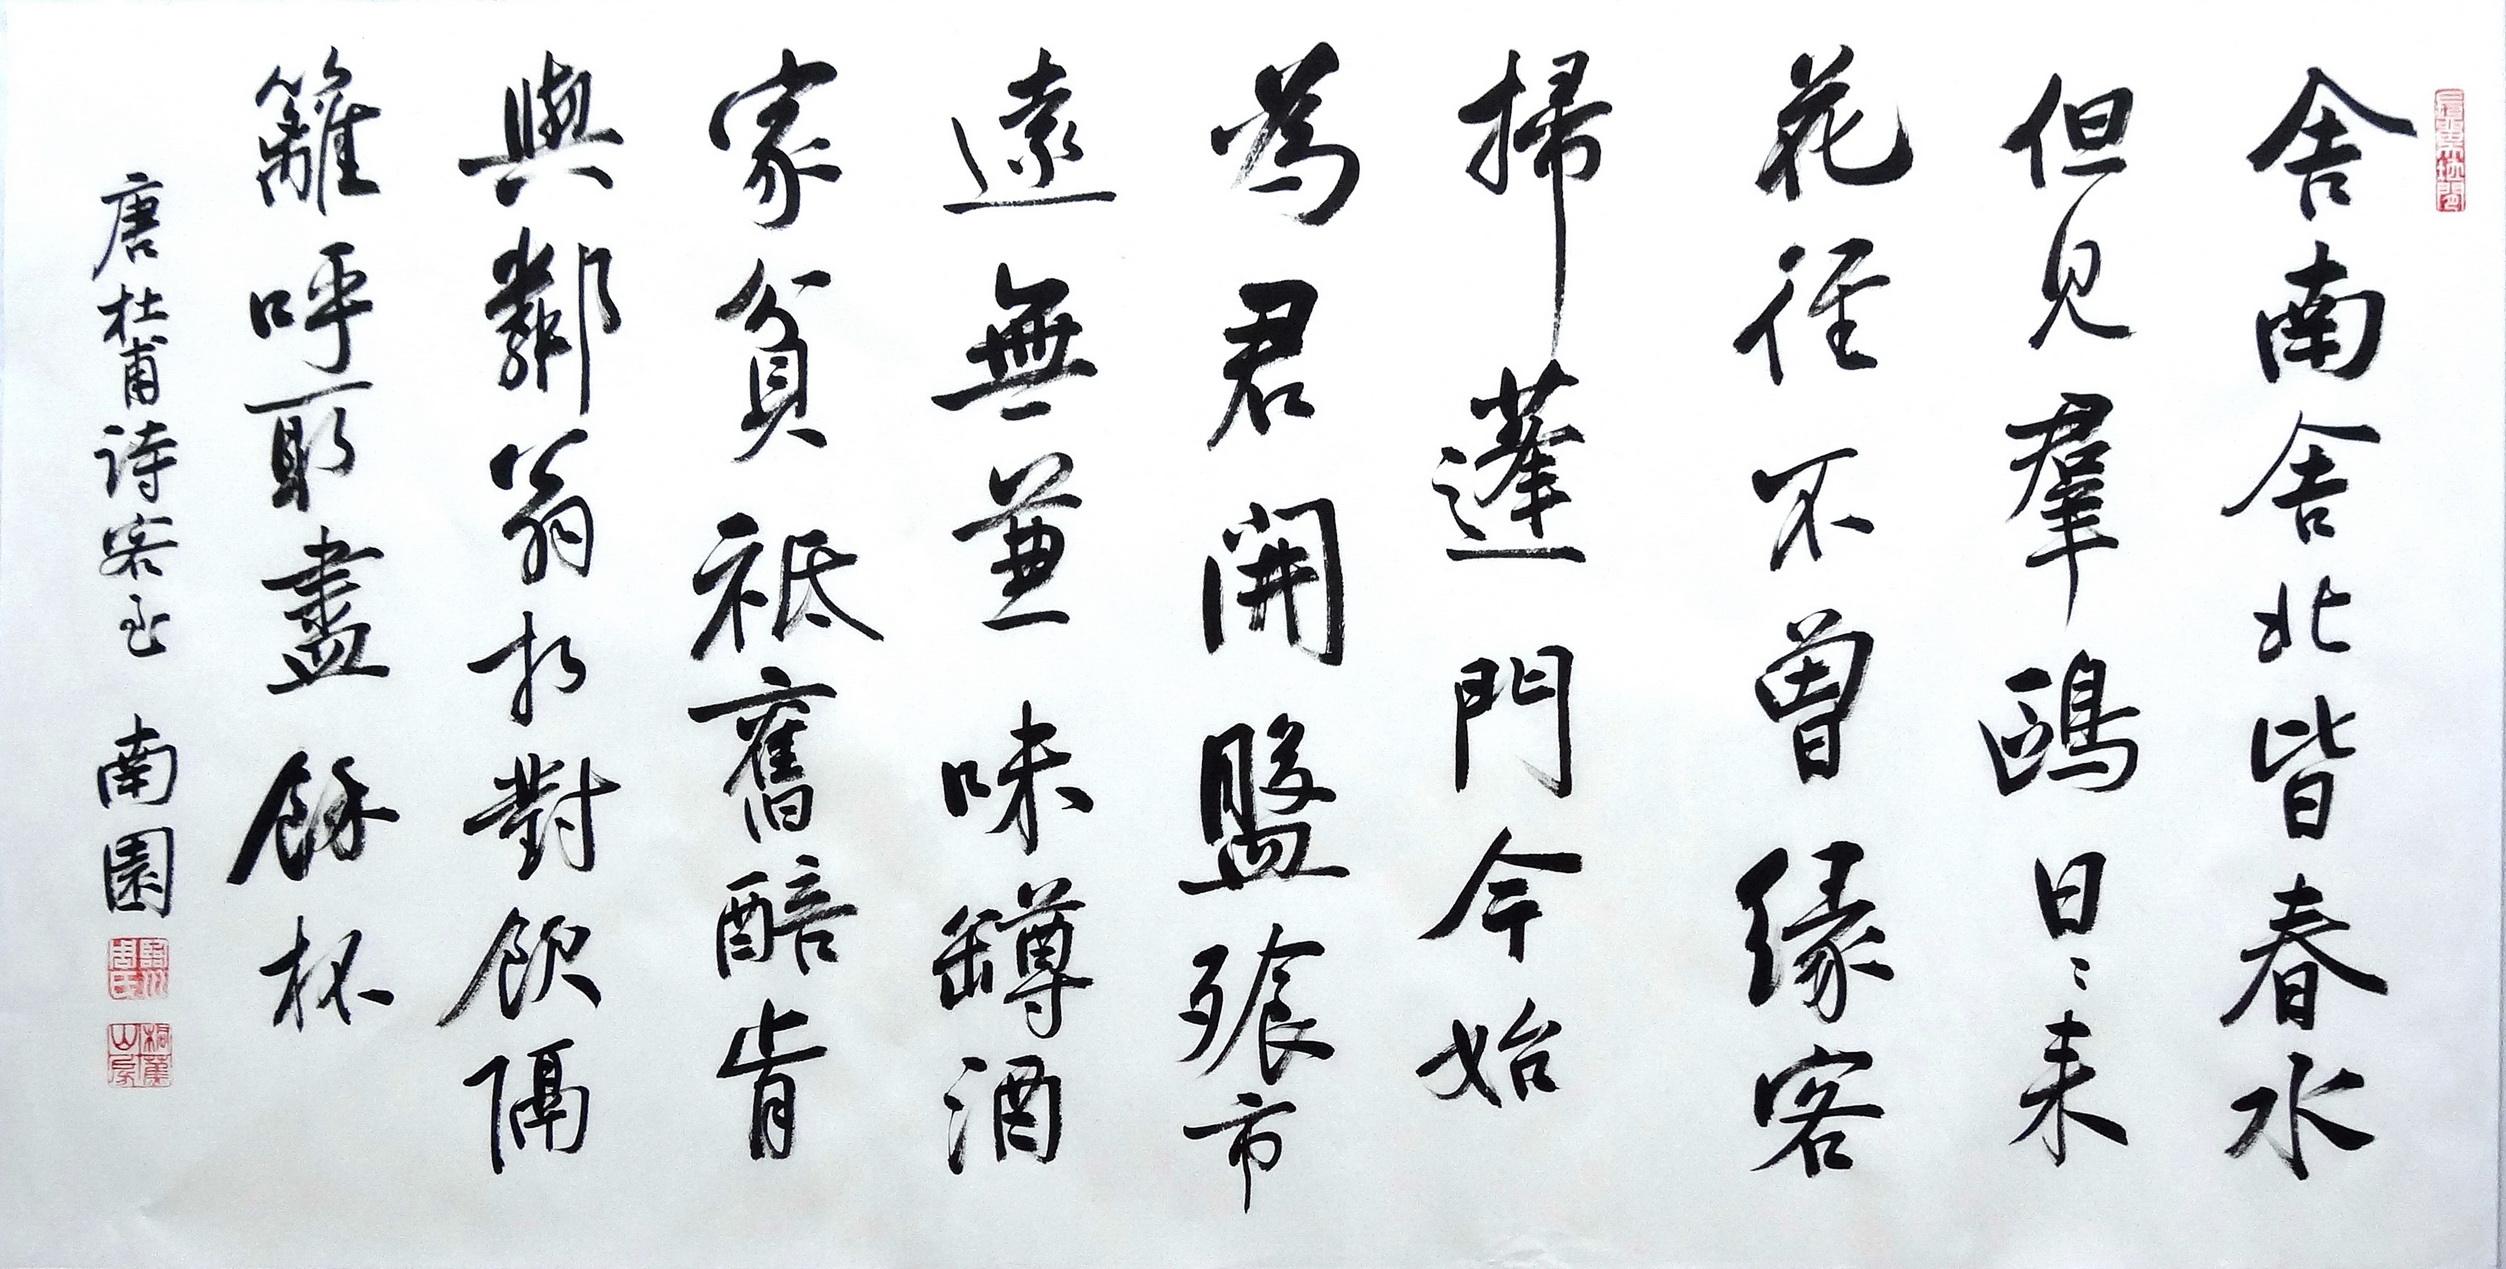 舍南舍北皆春水
但見羣鷗日〻来
花徑不曾緣客
掃蓬門今始
為君開盤飱市
遠無兼味罇酒
家貧祗舊醅肯
與鄰翁相對飲隔
籬呼取盡餘杯
唐杜甫詩客至 南園